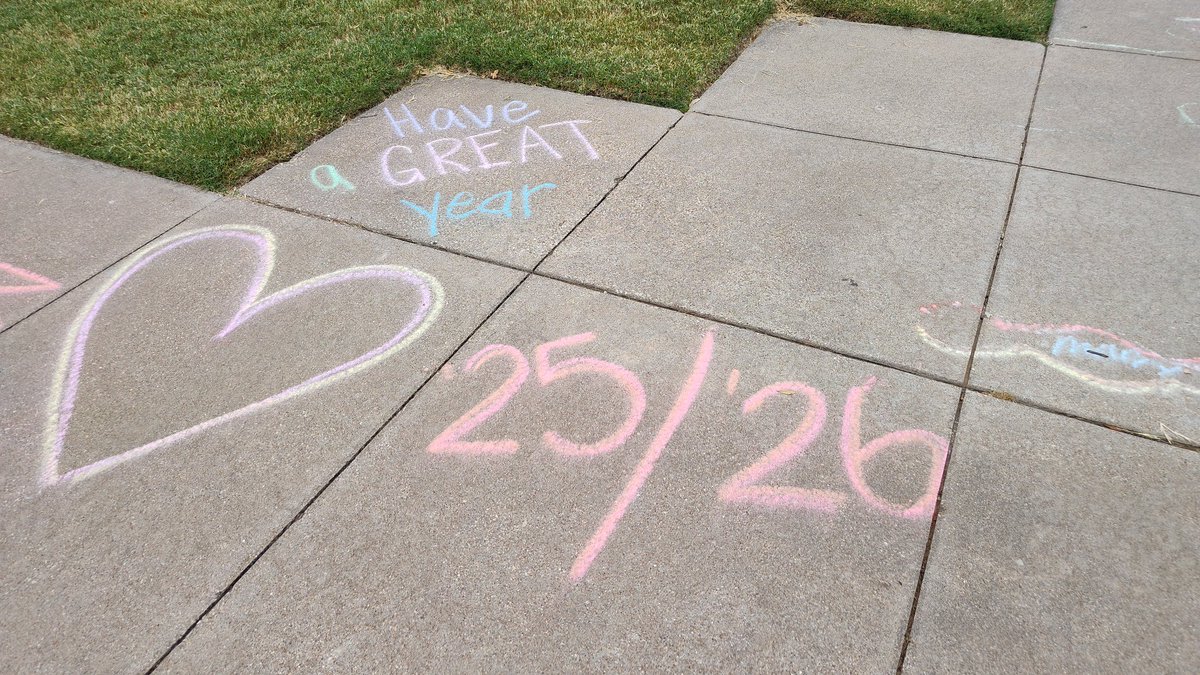 Have
a GREAT
year
'25/'26